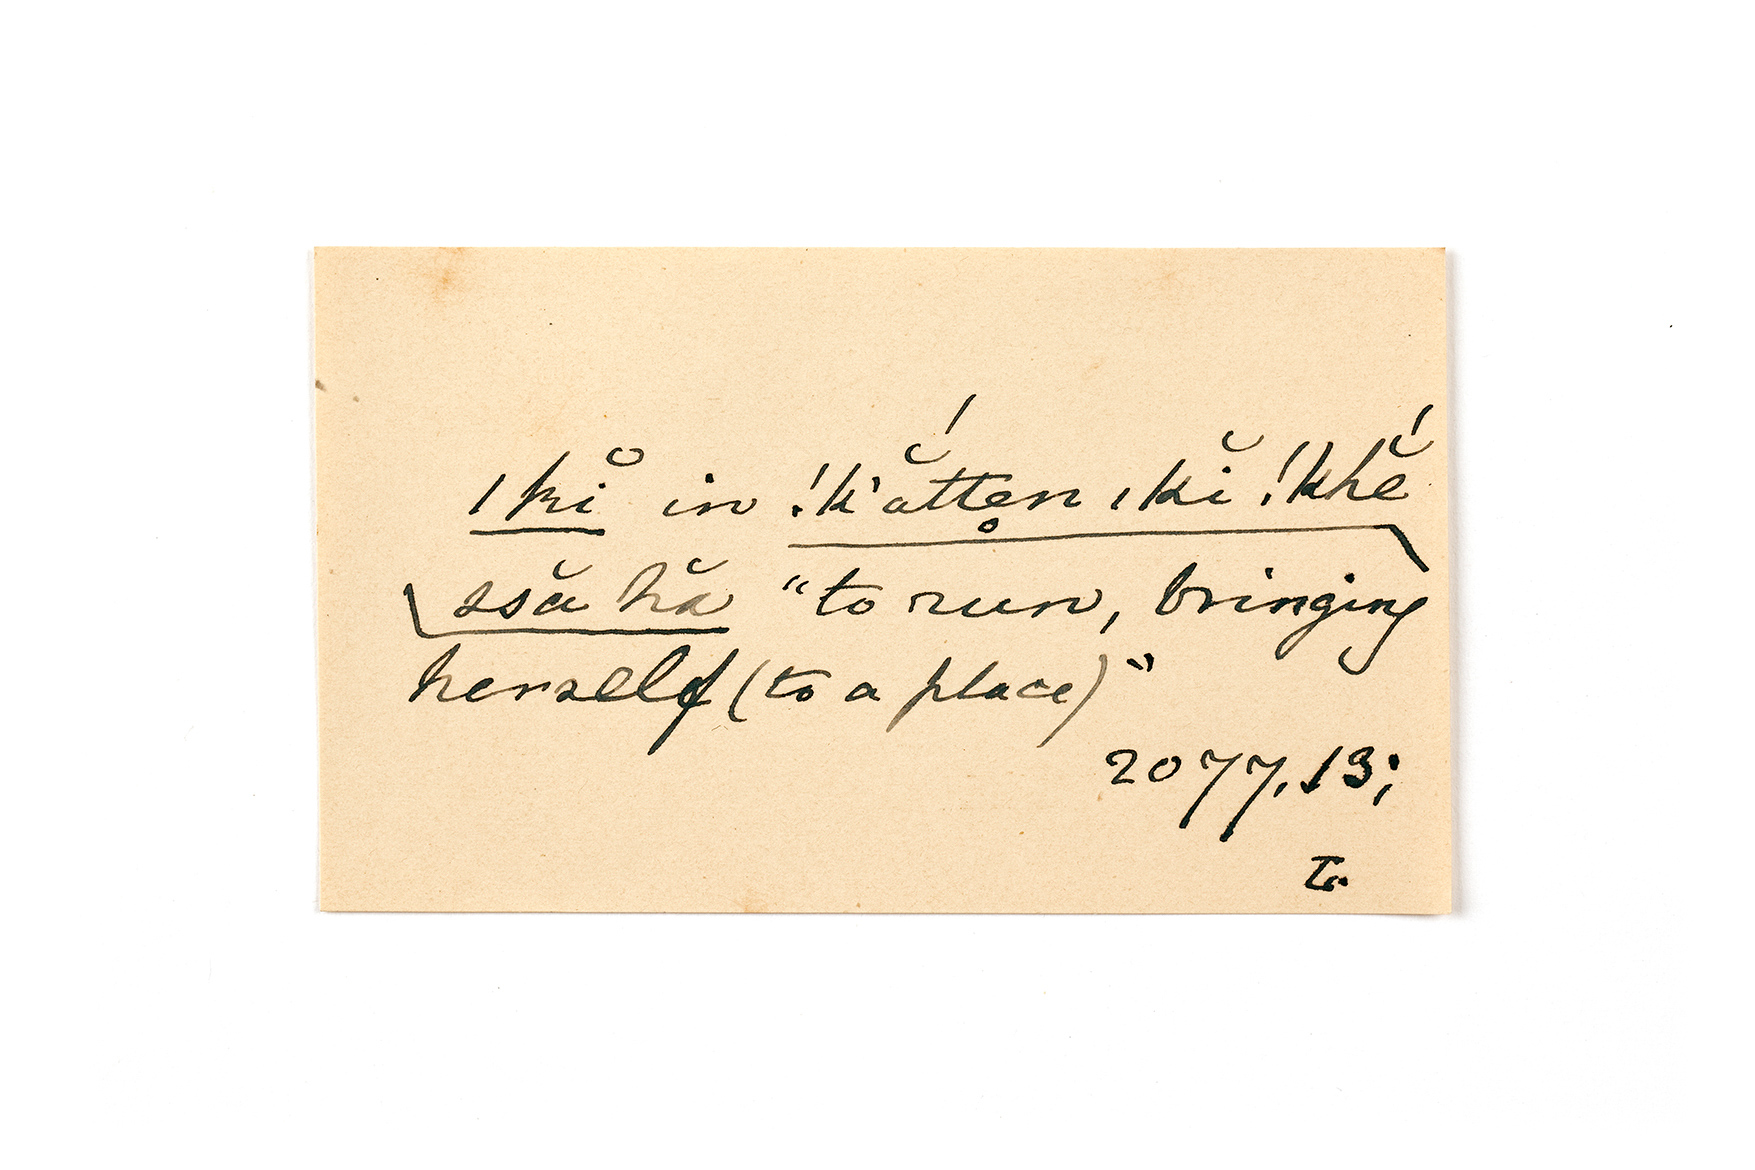 ǀkĭ in !k'ắttẹn ǀkĭ !khĕ́
ssă hă "to run, bringing
herself (to a place)"
2077.13;
T.